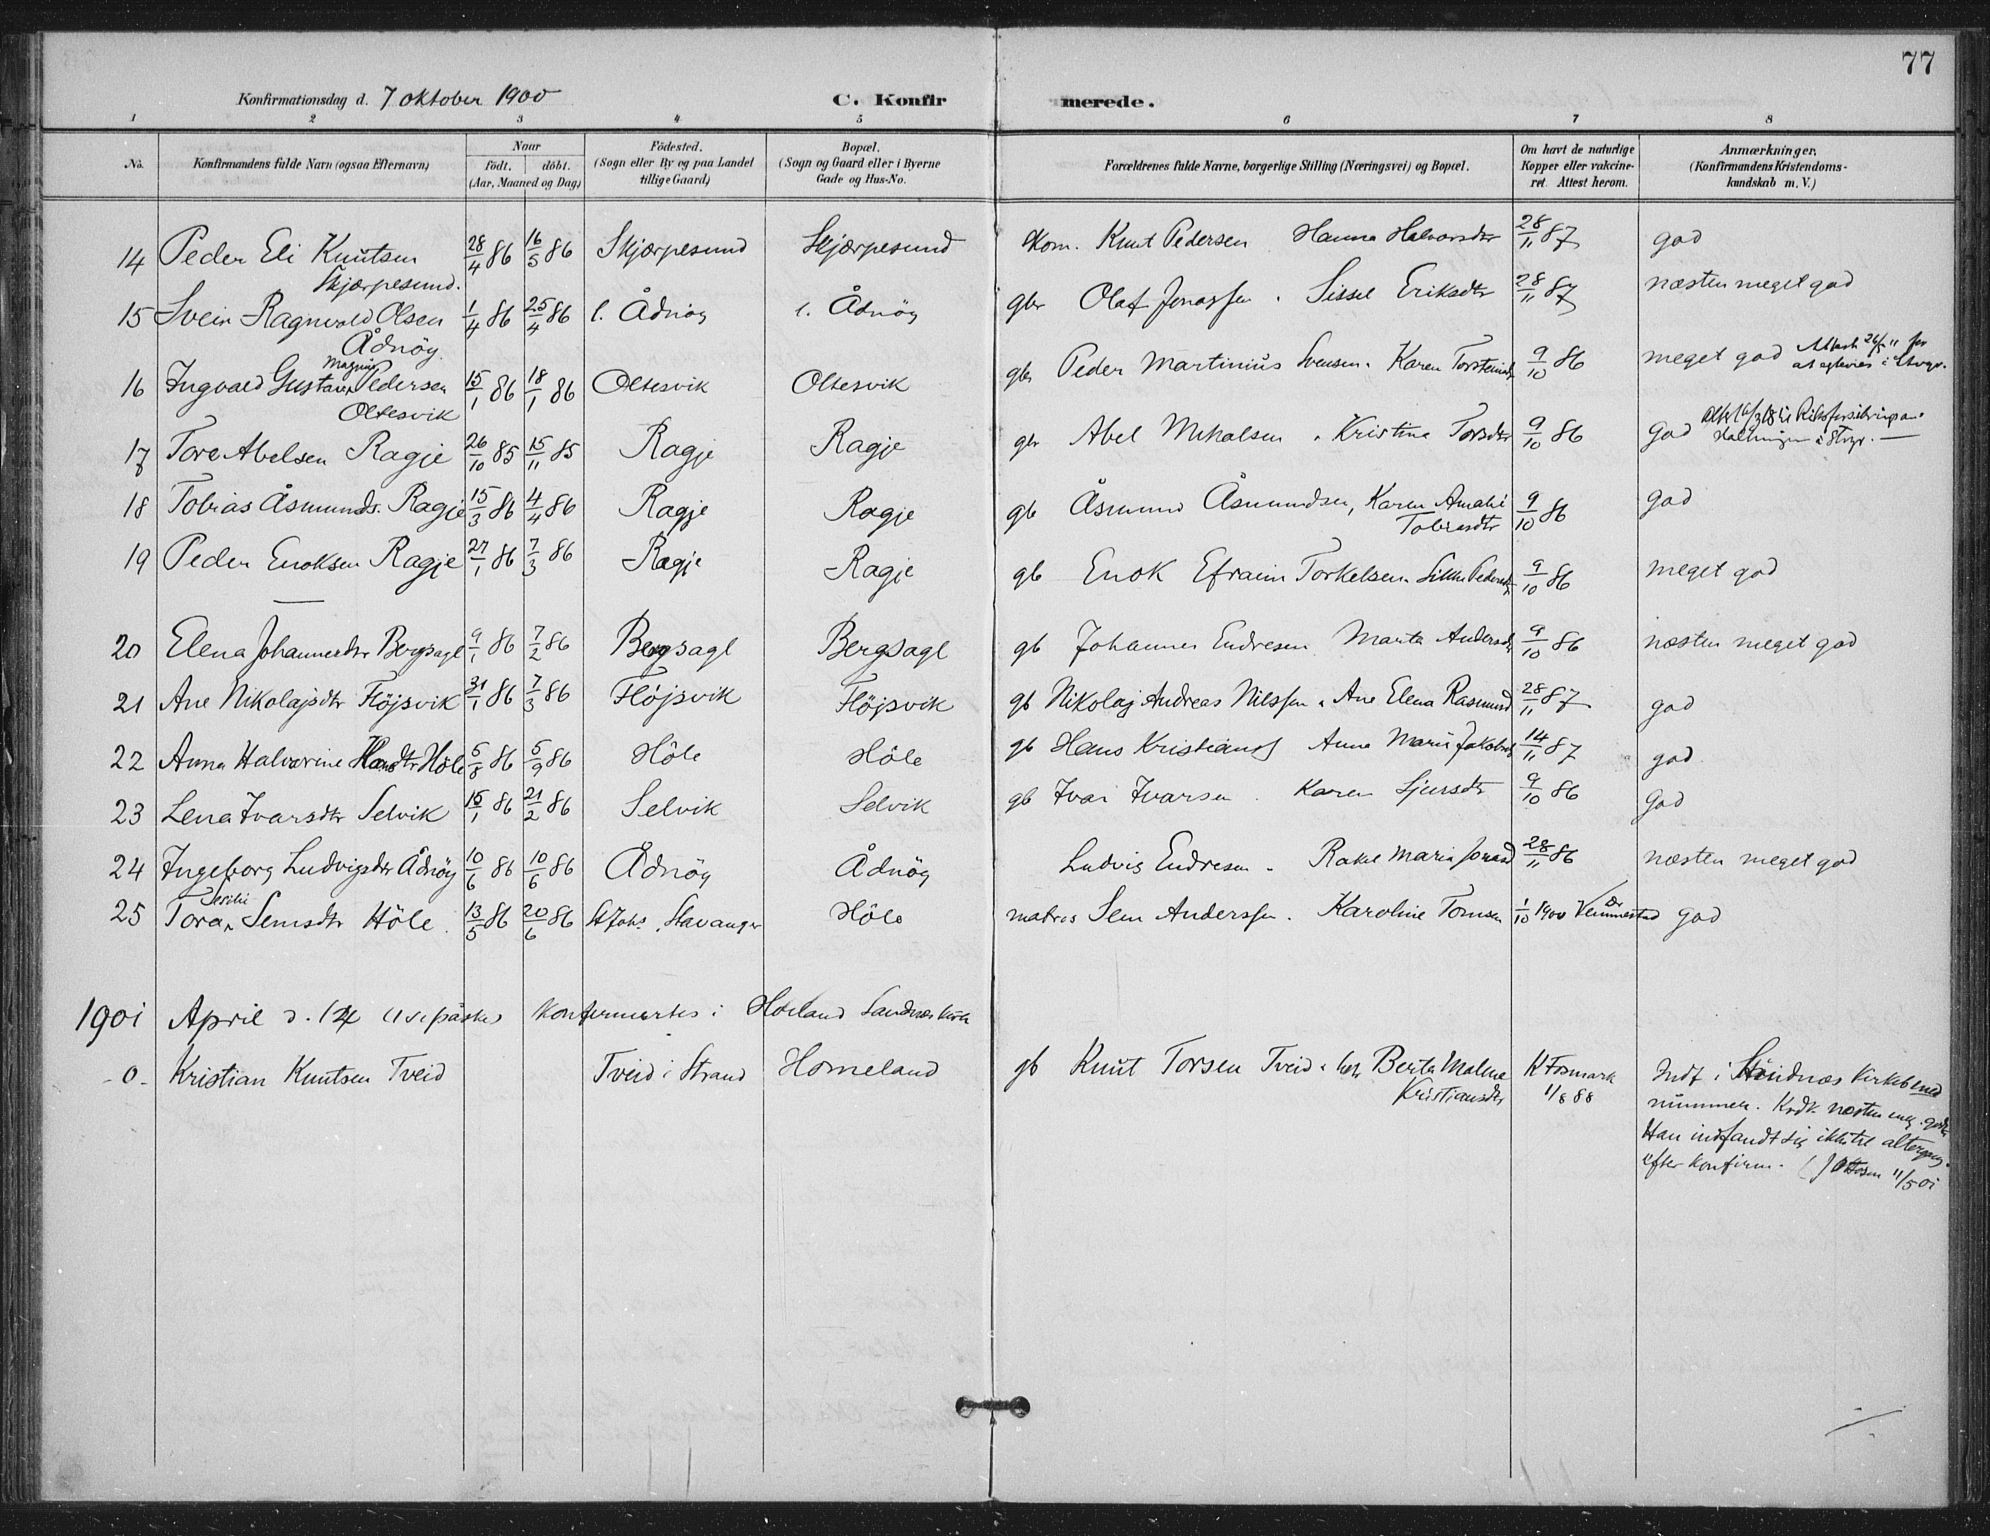 77
Konfirmationsdag d. 7 oktober 1900 C. Konfirmerede.
1 2 3 4 5 6 7 8
No. Konfirmandens fulde Navn (ogsaa Efternavn) Naar født. døbt. (Aar, Maaned og Dag) Fødested. (Sogn eller By og paa Landet tillige Gaard) Bopæl. (Sogn og Gaard eller i Byerne Gade og Hus-No. Forældrenes fulde Navne, borgerlige Stilling (Næringsvei) og Bopæl. Om havt de naturlige Kopper eller vakcineret. Attest herom. Anmærkninger, (Konfirmandens Kristendomskundskab m. V.)
14 Peder Eli Knutsen Skjærpesund. 28/4 86 16/5 86 Skjærpesund Skjærpesund Knut Pedersen Hanna Halvorsdtr 28/11 87 god
15 Svein Ragnvald Olsen Ådnöy. 1/4 86 25/4 86 l. Ådnöy l. Ådnöy gbr Olaf Jonassen . Sissel Eriksdtr 28/11 87 næsten meget god
16 Ingvald Gustav Magnus Pedersen Oltesvik 15/1 86 18/1 86 Oltesvik Oltesvik gbr Peder Martinius Svensen . Karen Torsteinsdtr 9/10 86 meget god
17 Tore Abelsen Ragje 26/10 85 15/11 85 Ragje Ragje gbr Abel Mikalsen . Kristine Torsdtr 9/10 86 god
18 Tobias Åsmunds. Ragje 15/3 86 4/4 86 Ragje Ragje gb Åsmund Åsmundsen, Karen Amalie Tobiasdtr 9/10 86 god
19 Peder Enoksen Ragje 27/1 86 7/3 86 Ragje Ragje gb Enok Efraim Torkelsen . Pedersdtr 9/10 86 meget god
20 Elena Johannesdtr Bergsagl 9/1 86 7/2 86 Bergsagl Bergsagl gb Johannes Endresen Marta Andersdtr 9/10 86 næsten meget god
21 Ane Nikolajsdtr Flöjsvik 31/1 86 7/3 86 Flöjsvik Flöjsvik gb Nikolaj Andreas Nilssen . Ane Elena Rasmusd 28/11 87 god
22 Anna Halvarine Hansdtr Höle 5/8 86 5/9 86 Höle Höle gb Hans Kristians Anne Marie Jakobsd 14/11 87 god
23 Lena Ivarsdtr Selvik 15/1 86 21/2 86 Selvik Selvik gb Ivar Ivarsen . Karen Sjursdtr 9/10 86 god
24 Ingeborg Ludvigsdtr Ådnöy 10/6 86 10/6 86 Ådnöy Ådnöy Ludvig Endresen . Rakel Maria Jonasd 28/11 86 næsten meget god
25 Tora Semsdtr Höle 13/5 86 20/6 86 St Johs. Stavanger Höle matros Sem Anderssen . Karoline Tomsen 1/10 1900 Dr Vennestad god
1901 April d. 14 (1 s. e. påske) konfirmertes i Höiland Sandnæs kirke
- 0 - Kristian Knutsen Tveid Tveid i Strand Homeland gb Knut Torsen Tveid . Berta Malene Kristiansdtr K Fosmark 11/8 88 Indf i Sandnæs Kirkeb med
nummer. Krdk. næsten meg. godt.
Han indfandt sig ikke til altergang
efter konfirm. ( J Ottesen 11/5 01